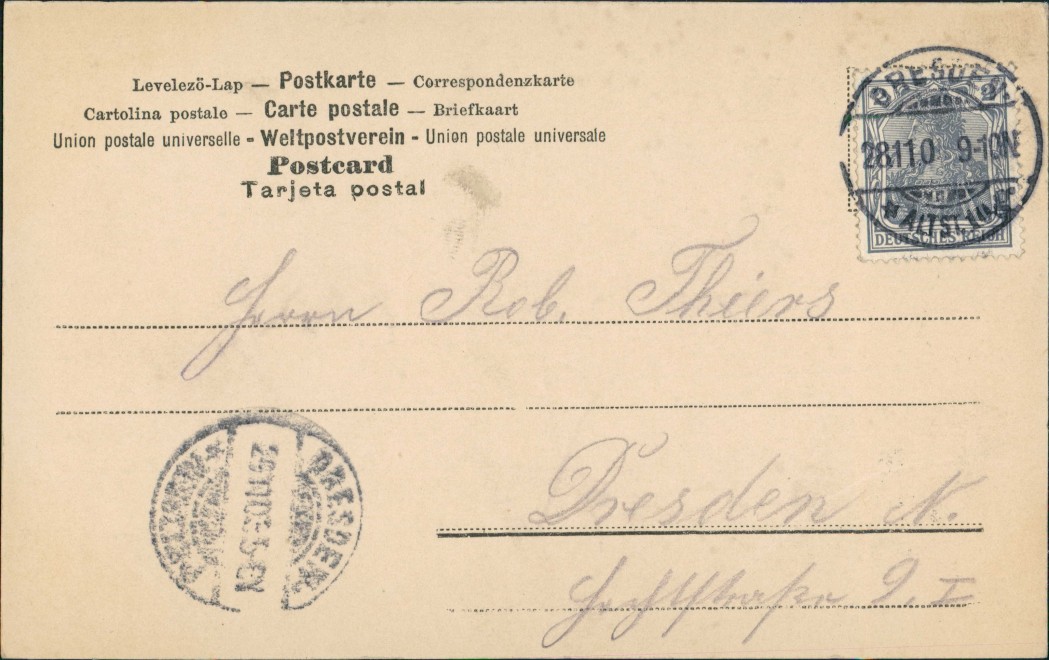 Levelezö-Lap — Postkarte — Correspondenzkarte
Cartolina postale — Carte postale — Briefkaart
Union postale universelle - Weltpostverein - Union postale universale
Postcard
Tarjeta postal
DRESDEN
2
28.11.0 9-10N
* ALTST.
DEUTSCHES REICH
Herrn Rob. Thiers
DRESDEN
Dresden N.
Hechtstraße 2. I